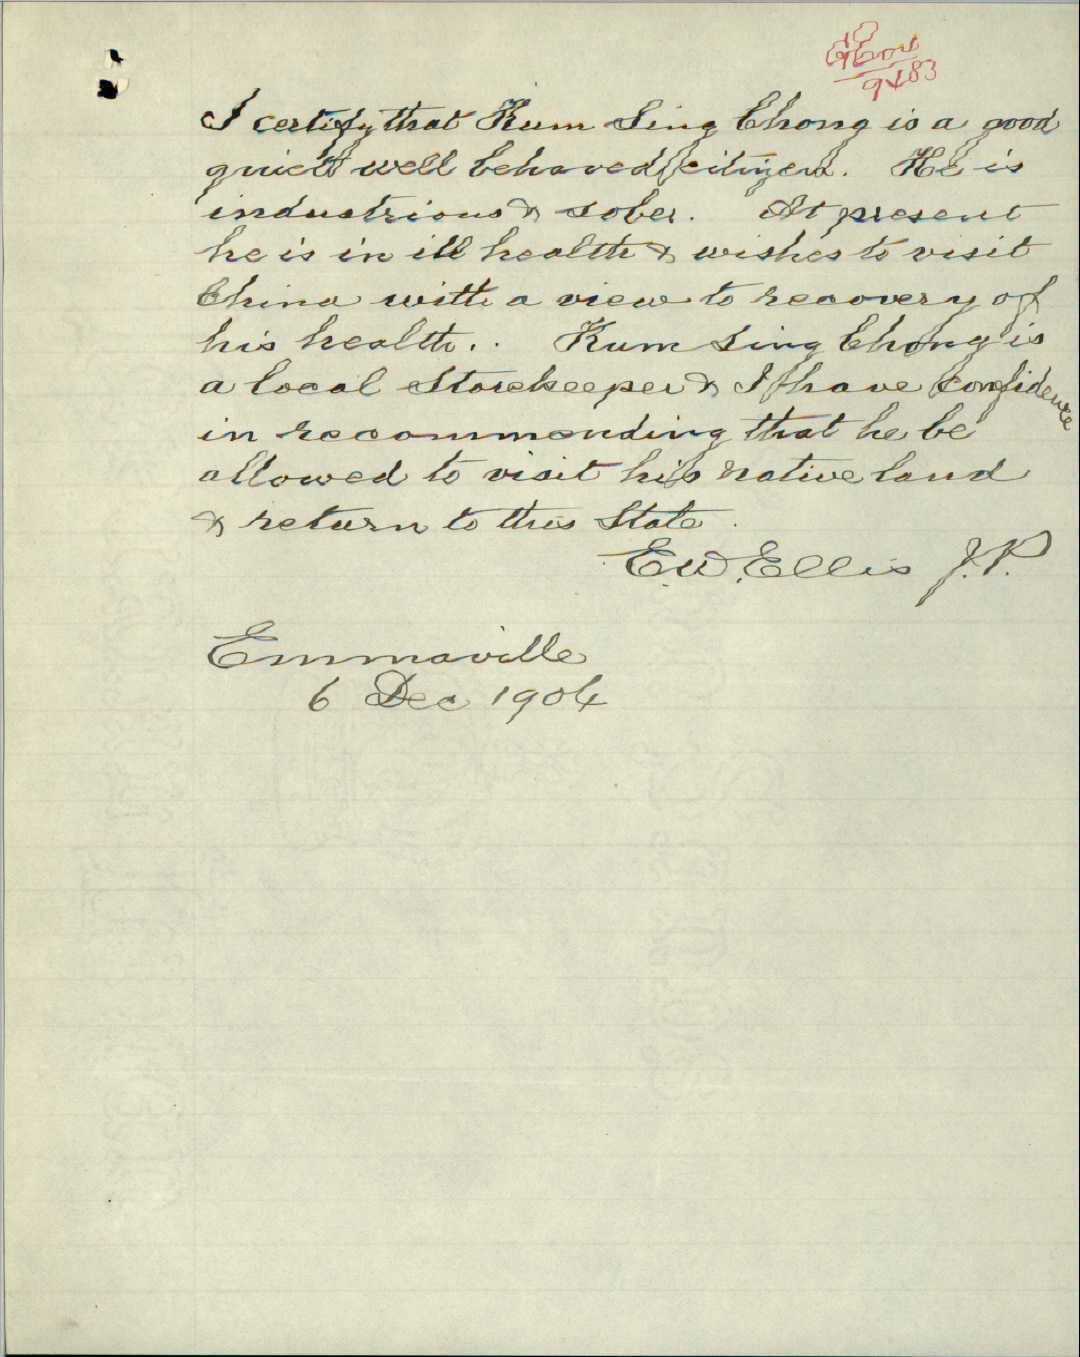 I certify that Kum Sing Chong is a good
quiet well behaved citizen. He is
industrious & sober. At present
he is in ill health & wishes to visit
China with a view to recovery of
his health.. Kum Sing Chong is
a local Storekeeper & I have confidence
in recommending that he be
allowed to visit his native land
& return to this State.
E.W. Ellis J.P.
Emmaville
6 Dec 1904